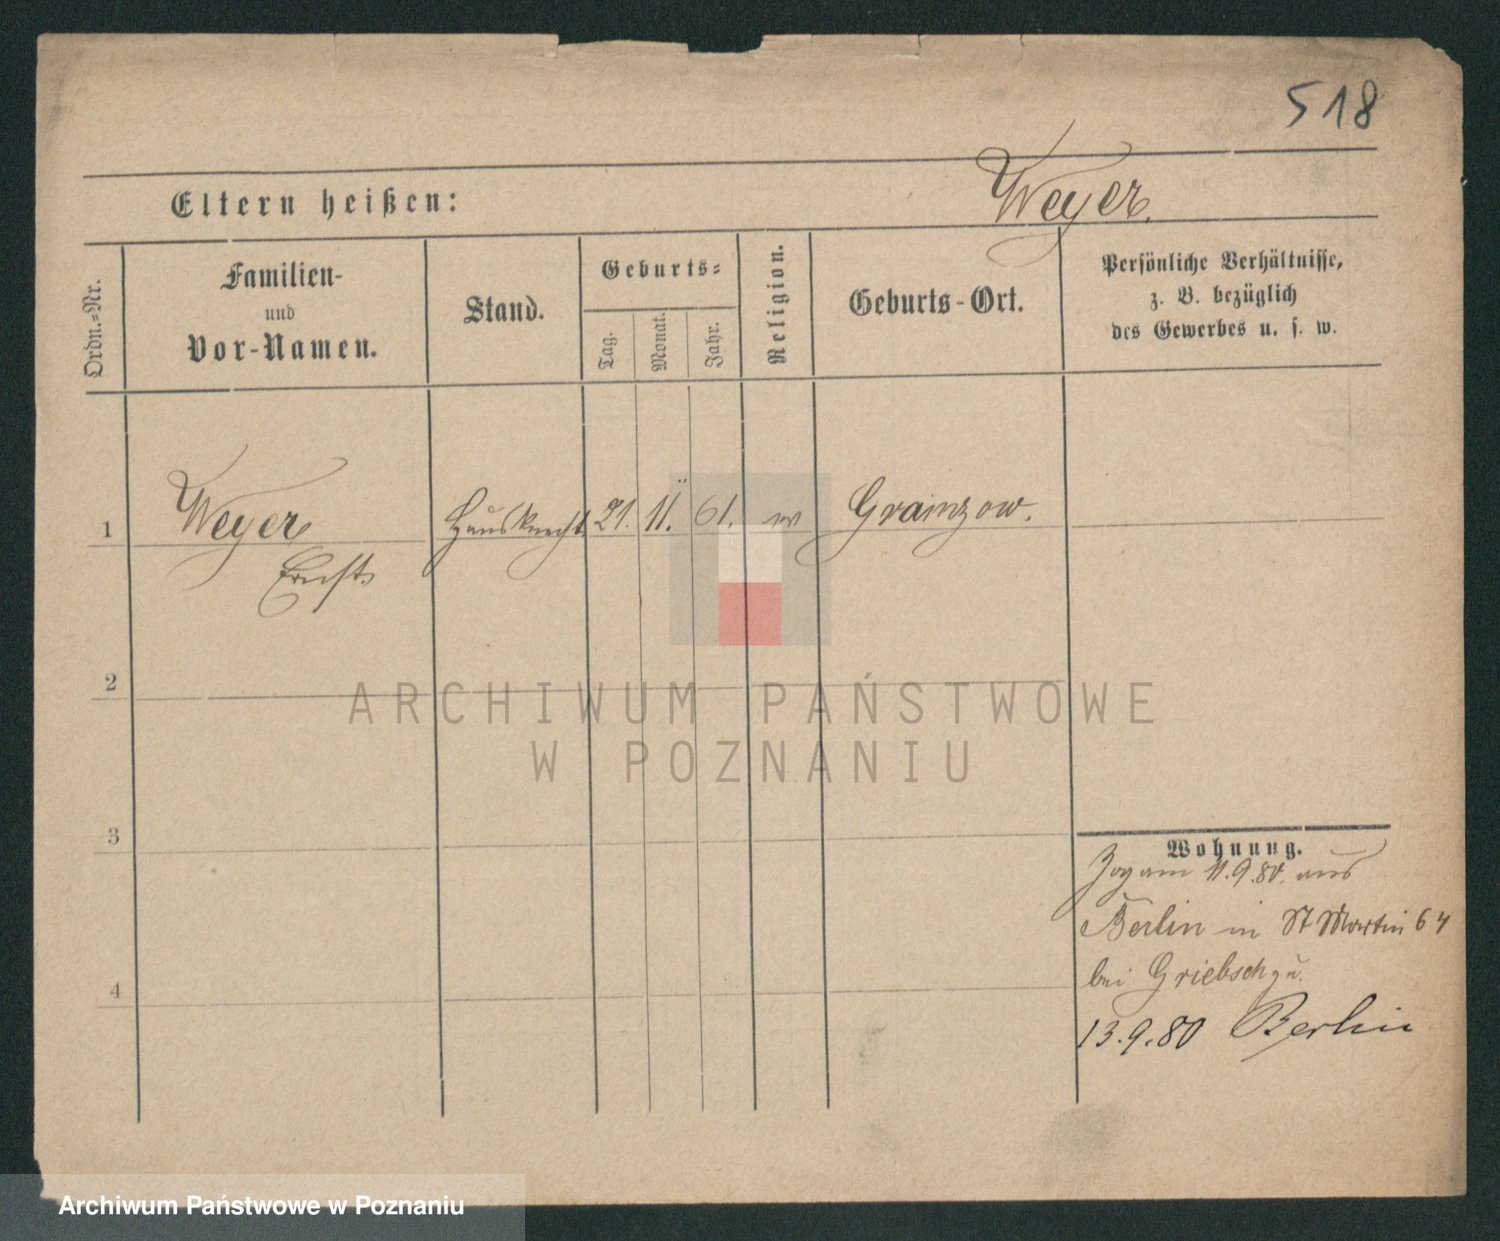 518
Weyer.
Eltern heißen:
Ordn.-Nr.
Familien-
und
Vor-Namen.
Stand.
Geburts-
Tag.
Monat.
Jahr.
Religion.
Geburts-Ort.
Persönliche Verhältnisse,
z. B. bezüglich
des Gewerbes u. s. w.
1
Weyer
Ernst
Hausknecht
21.
11.
61.
Gramzow.
2
ARCHIWUM PAŃSTWOWE
W POZNANIU
3
Wohnung.
Zog am 11.9.80. aus
Berlin in St Martin 64
bei Griebsch zu.
4
13.9.80 Berlin
Archiwum Państwowe w Poznaniu